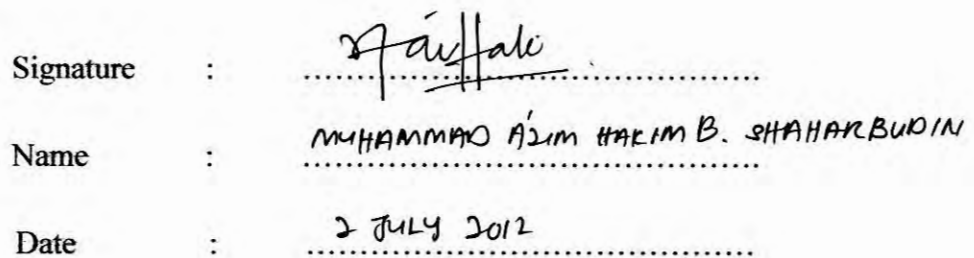 Signature :
Name : MUHAMMAD A'ZIM HAKIM B. SHAHARBUDIN
Date : 2 JULY 2012